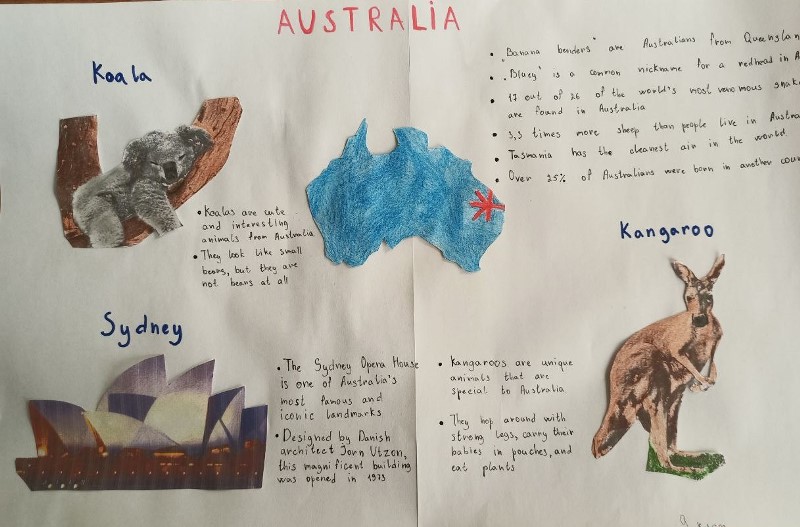 AUSTRALIA
Koala
• Koalas are cute
and interesting
animals from Australia
• They look like small
bears, but they are
not bears at all
• "Banana benders" are Australians from
• "Bluey" is a common nickname for a redhead in
• 17 out of 26 of the world's most venomous
are found in Australia
• 3,3 times more sheep than people live in
• Tasmania has the cleanest air in the world.
• Over 25% of Australians were born in another
Sydney
• The Sydney Opera House
is one of Australia's
most famous and
iconic landmarks
• Designed by Danish
architect Jorn Utzon,
this magnificent building
was opened in 1973
Kangaroo
• Kangaroos are unique
animals that are
special to Australia
• They hop around with
strong legs, carry their
babies in pouches, and
eat plants